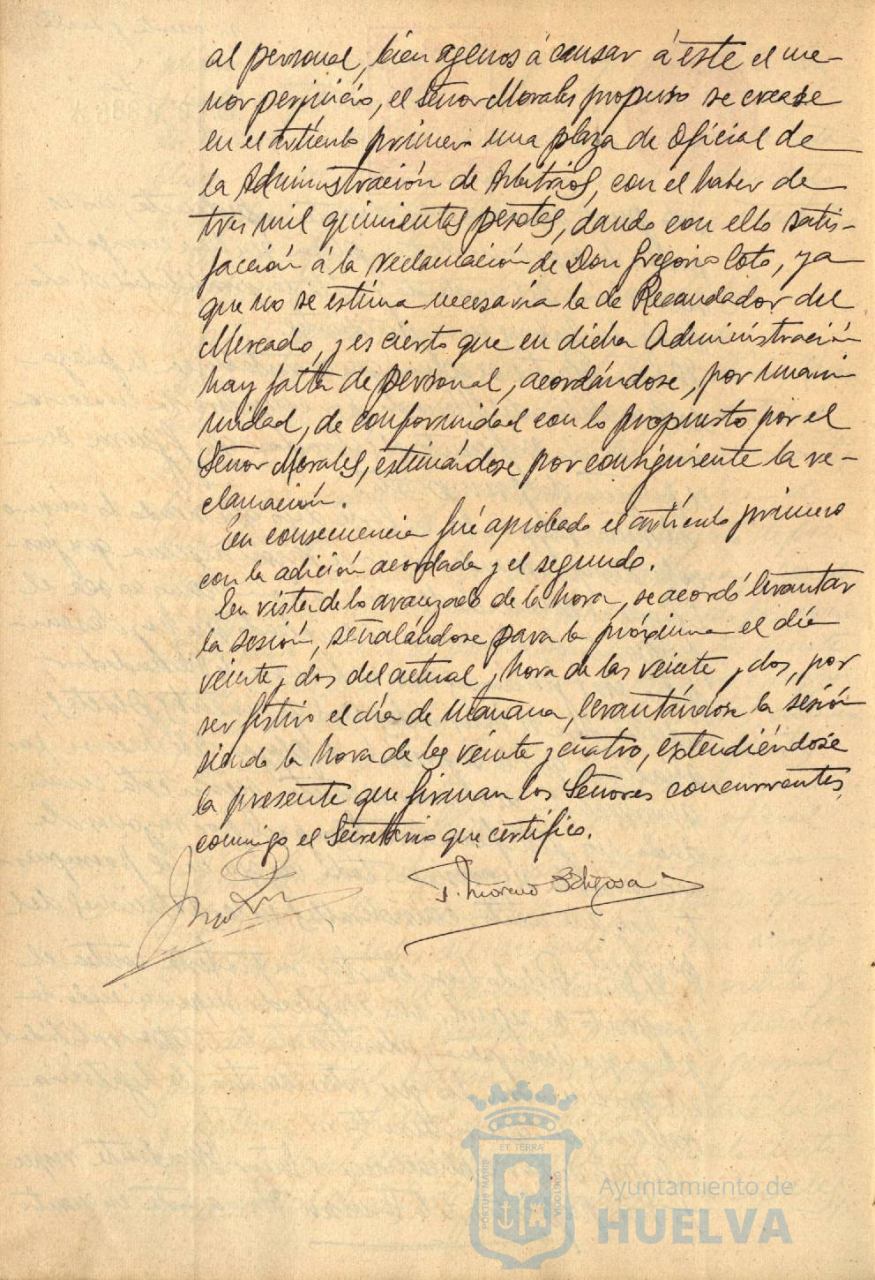 al personal, bien agenos á causar á este el me-
nor perjuicio, el Señor Morales propuso se crease
en el artículo primero una plaza de Oficial de
la Administración de Arbitrios, con el haber de
tres mil quinientas pesetas, dando con ello satis-
facción á la reclamación de Don Gregorio Coto, ya
que no se estima necesaria la de Recaudador del
Mercado, y es cierto que en dicha Administración
hay falta de personal, acordándose, por unani
midad, de conformidad con lo propuesto por el
Señor Morales, estimándose por consiguiente la re-
clamación.
En consecuencia fué aprobado el artículo primero
con la adición acordada y el segundo.
En vista de lo avanzado de la hora, se acordó levantar
la sesión, señalándose para la próxima el día
veinte y dos del actual y hora de las veinte y dos, por
ser festivo el día de mañana, levantándose la sesión
siendo la hora de las veinte y cuatro, extendiéndose
la presente que firman los Señores concurrentes,
conmigo el Secretario que certifico.
J. Moreno
ET TERRA
PORTUS MARIS
CUSTODIA
Ayuntamiento de
HUELVA